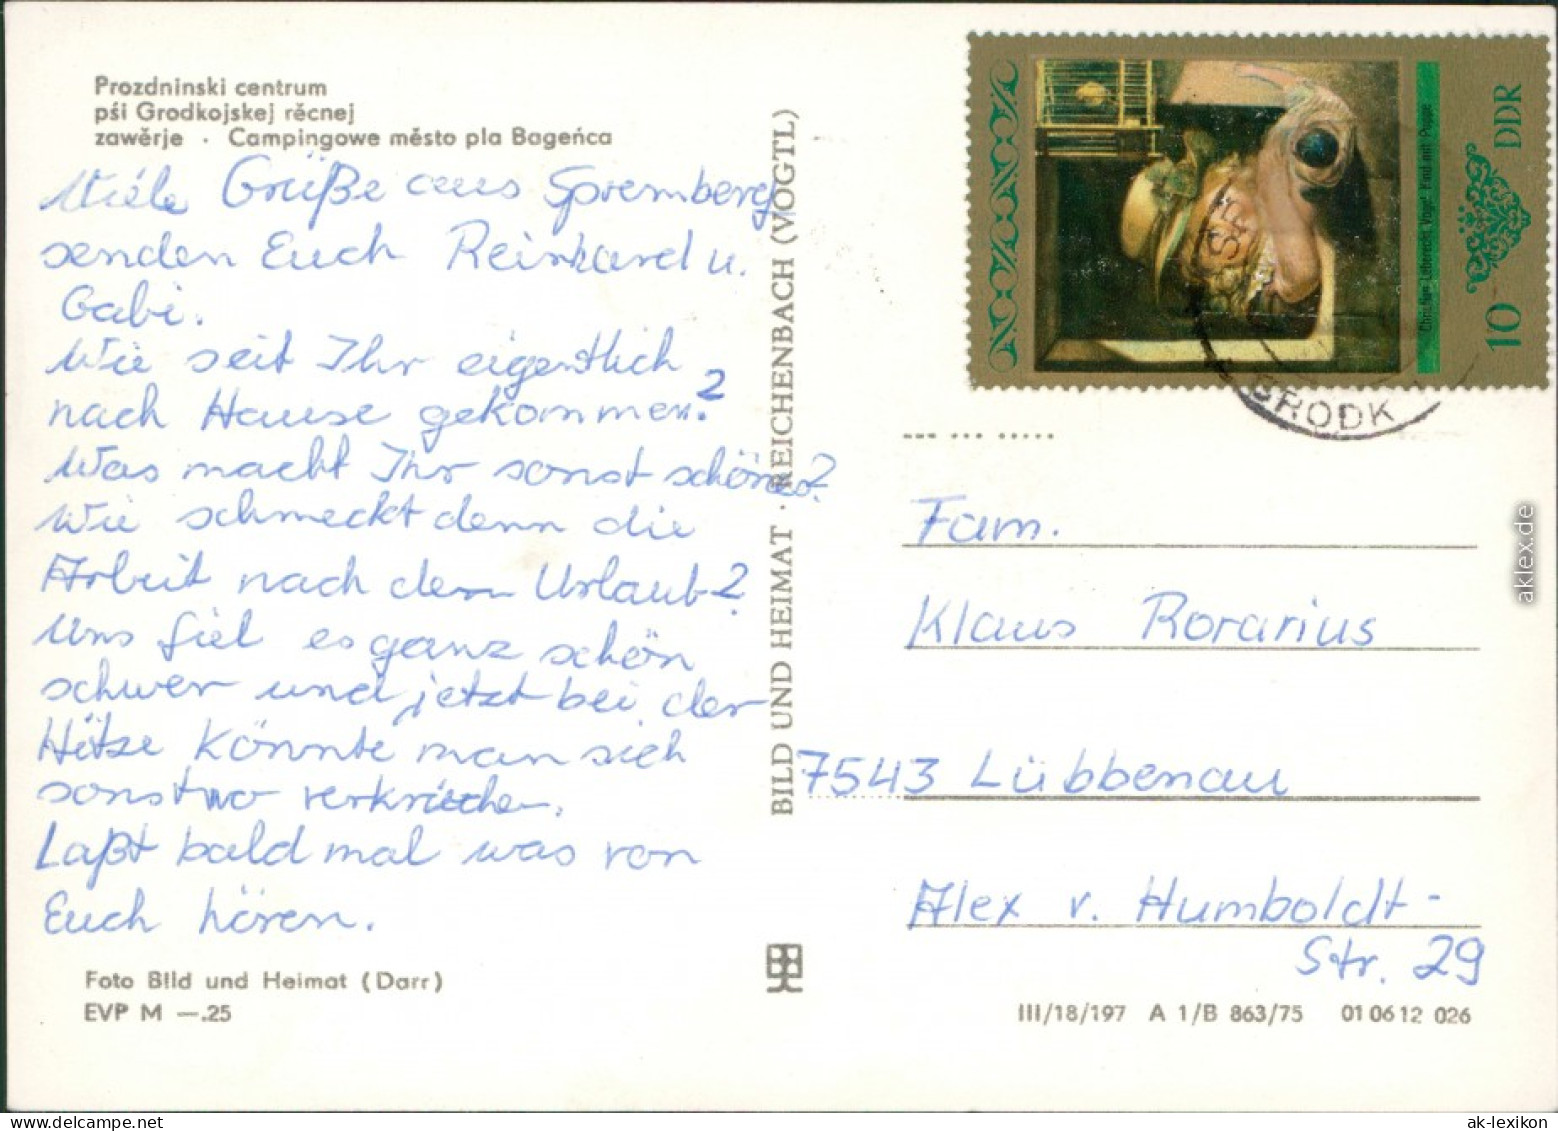 Prozdninski centrum
pśi Grodkojskej rěcnej
zawěrje · Campingowe město pla Bageńca
Viele Grüße aus Spremberg
senden Euch Reinhard u.
Gabi.
Wie seit Ihr eigentlich
nach Hause gekommen?
Was macht Ihr sonst schönes?
Wie schmeckt denn die
Arbeit nach dem Urlaub?
Uns fiel es ganz schön
schwer und jetzt bei der
Hitze könnte man sich
sonstwo verkriechen.
Laßt bald mal was von
Euch hören.
Foto Bild und Heimat (Darr)
EVP M —.25
BILD UND HEIMAT · REICHENBACH (VOGTL)
DDR
10
Christian Leberecht Vogel: Kind mit Puppe
SPREM
BRODK
Fam.
Klaus Rorarius
7543 Lübbenau
Alex v. Humboldt-
Str. 29
III/18/197 A 1/B 863/75 01 06 12 026
aklex.de
ak-lexikon